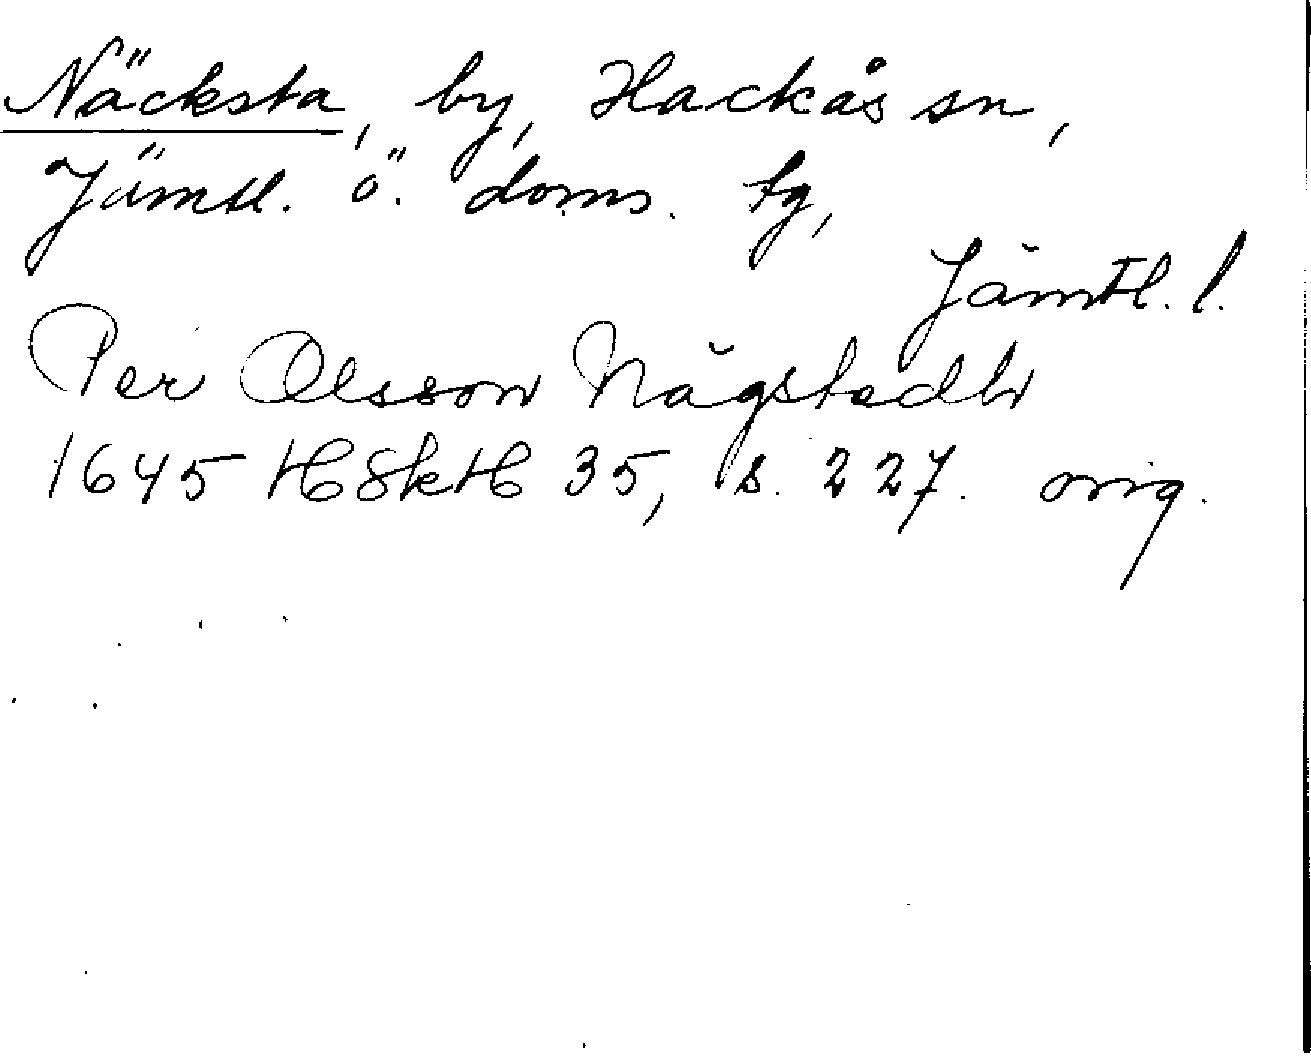 Näcksta, by, Hackås sn,
Jämtl. ö. doms. tg,
Jämtl. l.
Per Olsson Nägstadh
1645 HSkH 35, s. 227. orig.